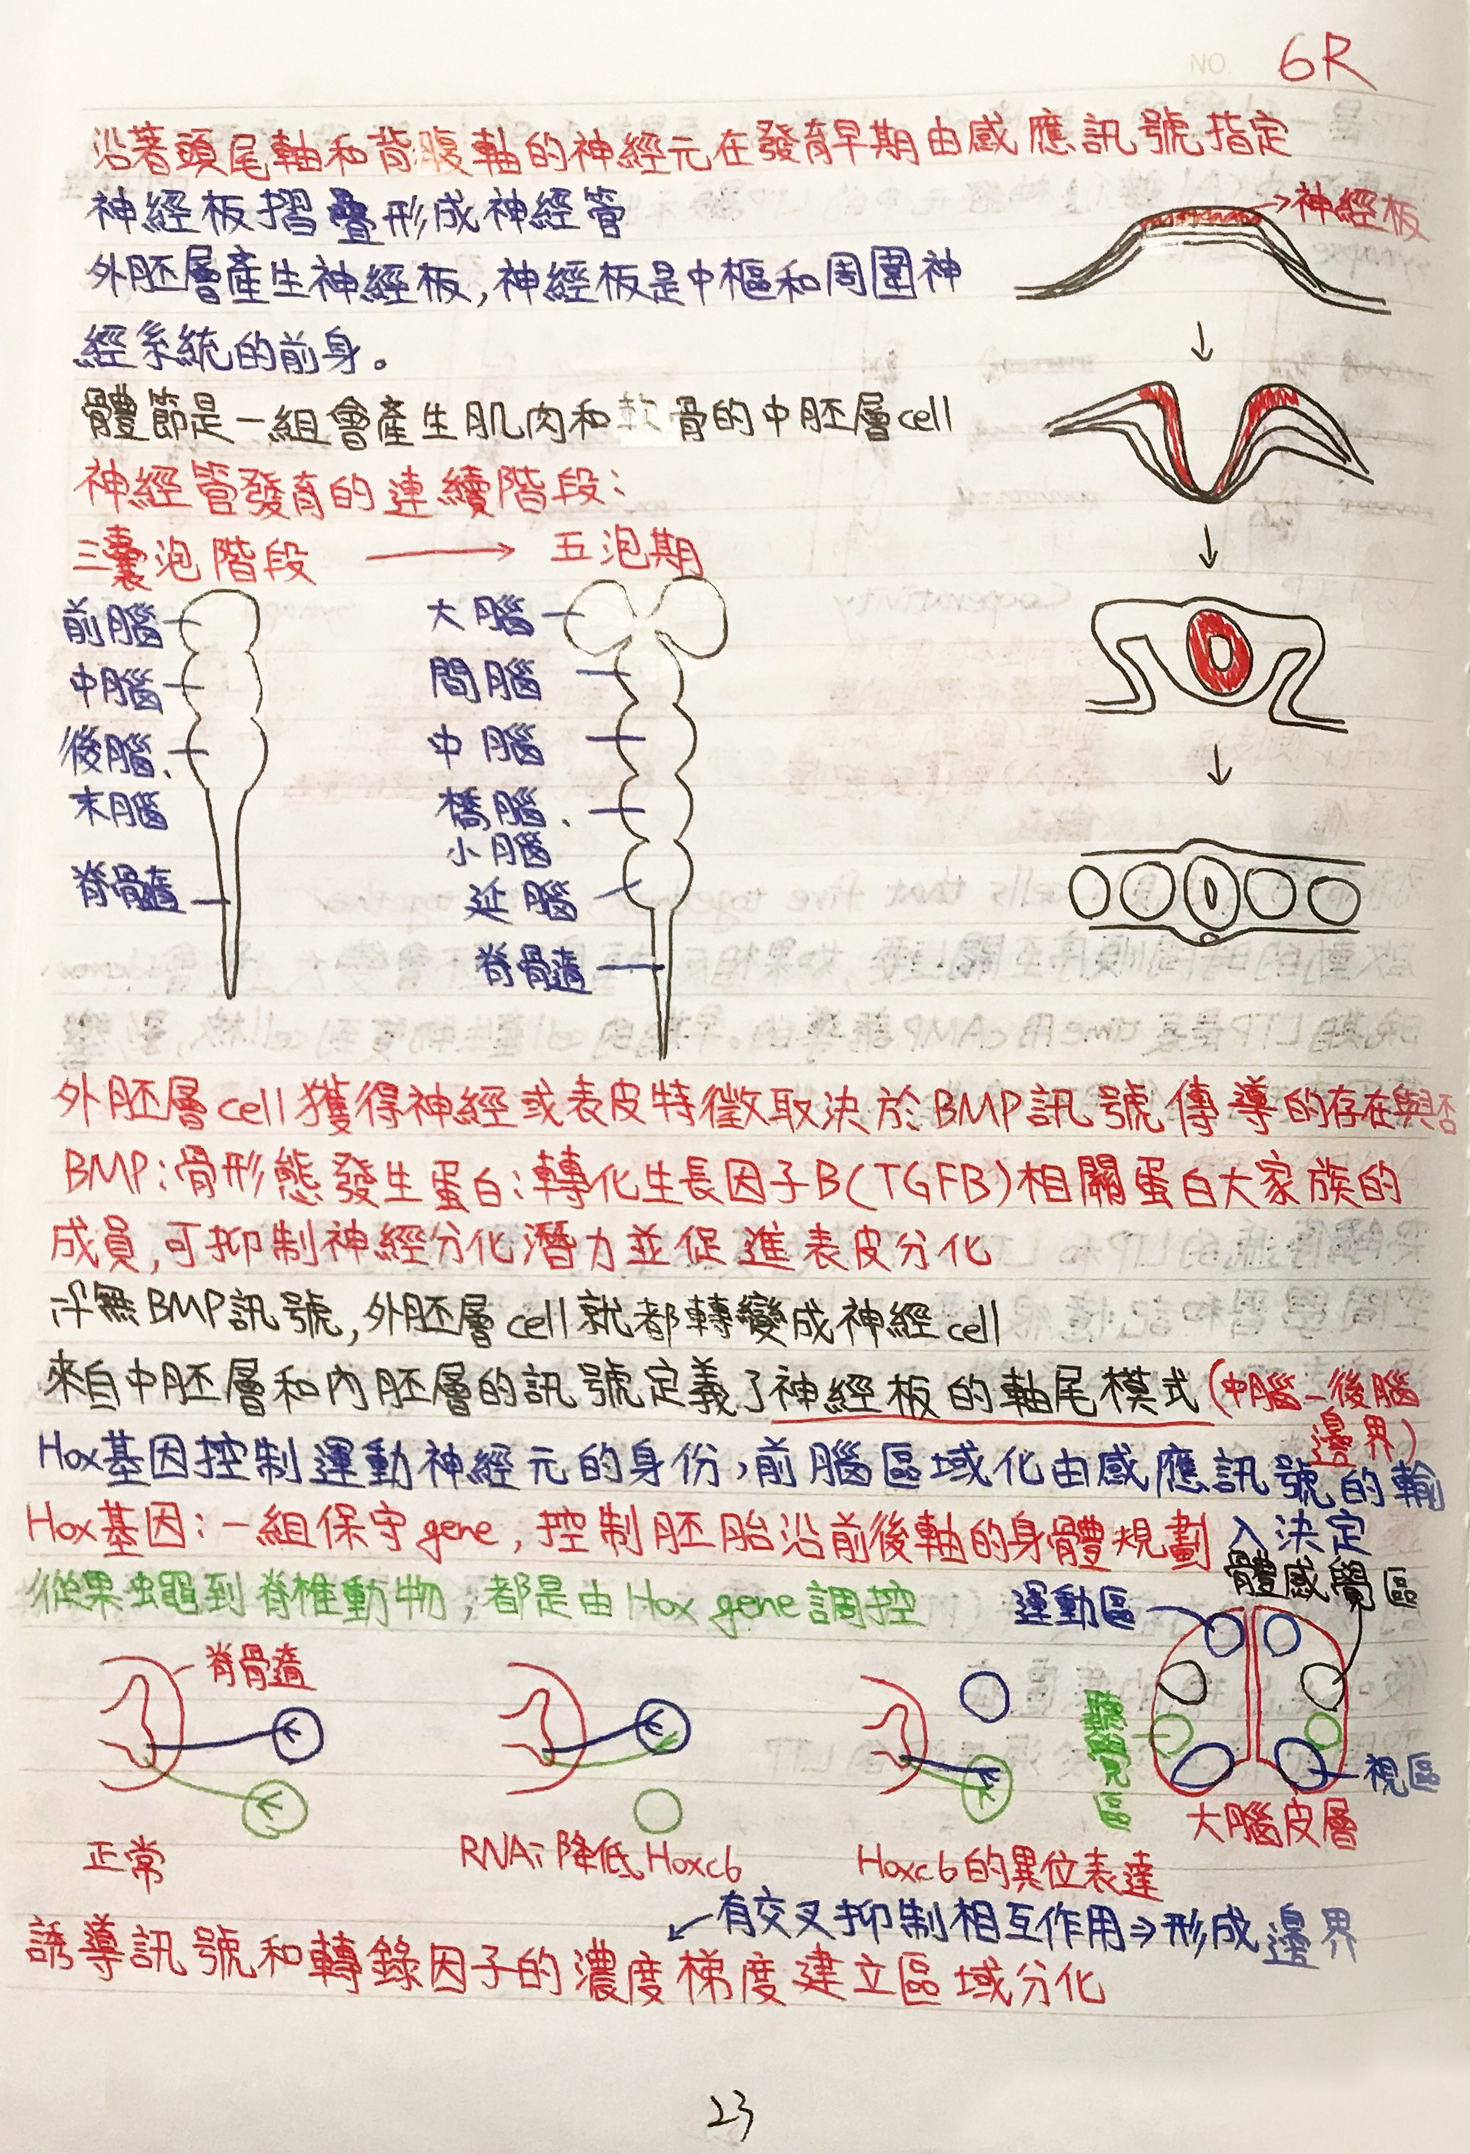 NO.
6R
沿著頭尾軸和背腹軸的神經元在發育早期由感應訊號指定
神經板摺疊形成神經管
→神經板
外胚層產生神經板,神經板是中樞和周圍神
經系統的前身。
體節是一組會產生肌肉和軟骨的中胚層cell
神經管發育的連續階段:
三囊泡階段 → 五泡期
前腦
中腦
後腦、
末腦
脊骨髓
大腦
間腦
中腦
橋腦、
小腦
延腦
脊骨髓
外胚層cell獲得神經或表皮特徵取決於BMP訊號傳導的存在與否
BMP:骨形態發生蛋白:轉化生長因子B(TGFB)相關蛋白大家族的
成員,可抑制神經分化潛力並促進表皮分化
無BMP訊號,外胚層cell就都轉變成神經cell
來自中胚層和內胚層的訊號定義了神經板的軸尾模式(中腦-後腦
邊界)
Hox基因控制運動神經元的身份,前腦區域化由感應訊號的輸
入決定
Hox基因:一組保守gene,控制胚胎沿前後軸的身體規劃
從果蠅到脊椎動物,都是由Hox gene調控
運動區
體感覺區
聽覺區
視區
大腦皮層
脊骨髓
正常
RNAi降低Hoxc6
Hoxc6的異位表達
有交叉抑制相互作用⇒形成邊界
誘導訊號和轉錄因子的濃度梯度建立區域分化
23